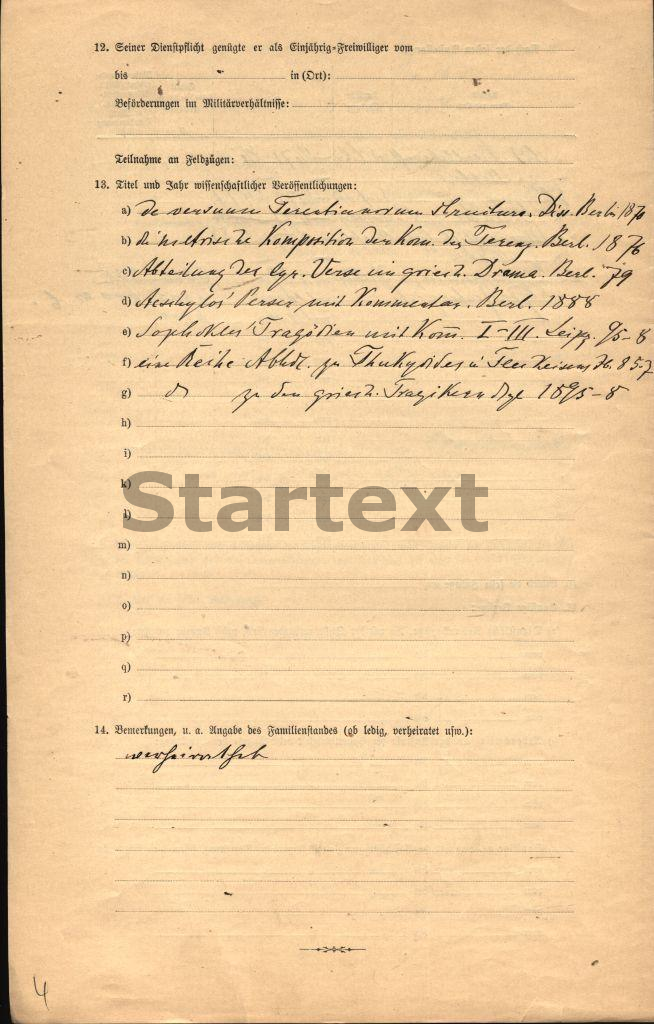 12. Seiner Dienstpflicht genügte er als Einjährig-Freiwilliger vom
bis in (Ort):
Beförderungen im Militärverhältnisse:
Teilnahme an Feldzügen:
13. Titel und Jahr wissenschaftlicher Veröffentlichungen:
a) de versuum Terentianorum structura. Diss. Berlin 1870
b) die metrische Komposition der Kom. des Terenz. Berl. 1876
c) Abteilung der lyr. Verse im griech. Drama. Berl. 79
d) Aeschylos' Perser mit Kommentar. Berl. 1888
e) Sophokles' Tragödien mit Kom. I-III. Leipz. 95-8
f) eine Reihe Abhdl. zu Thukydides i Fleckeisens Jb. 85-7
g) zu den griech. Tragikern 1895-8
h)
i)
k)
l)
Startext
m)
n)
o)
p)
q)
r)
14. Bemerkungen, u. a. Angabe des Familienstandes (ob ledig, verheiratet usw.):
verheirathet
4